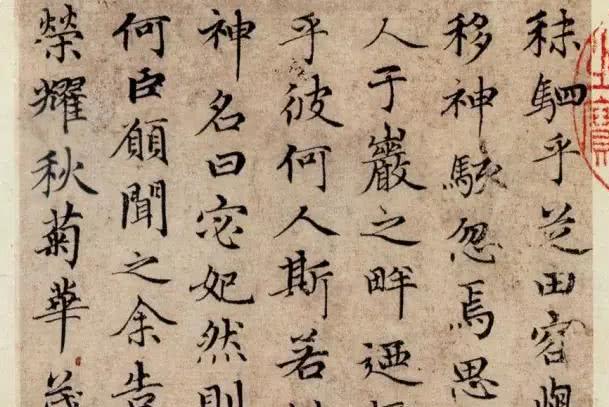 秣駟乎芝田容
移神駭忽焉思
人于巖之畔迺
乎彼何人斯若
神名曰宓妃然則
何臣願聞之余告
榮耀秋菊華茂